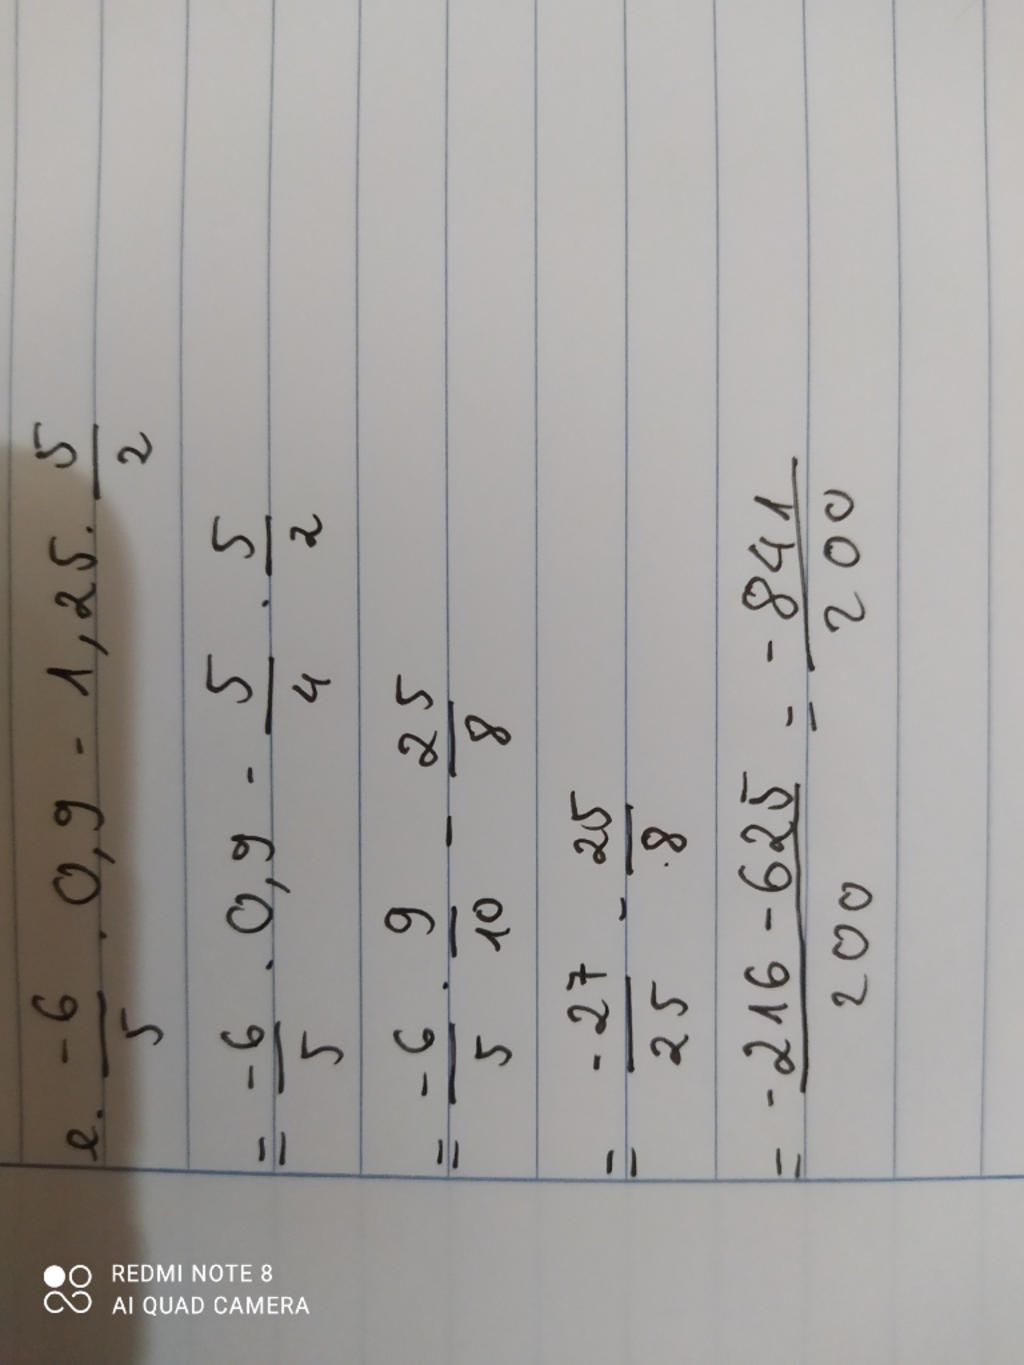 e. -6/5 . 0,9 - 1,25. 5/2
= -6/5 . 0,9 - 5/4 . 5/2
= -6/5 . 9/10 - 25/8
= -27/25 - 25/8
= -216 - 625/200 = -841/200
REDMI NOTE 8
AI QUAD CAMERA